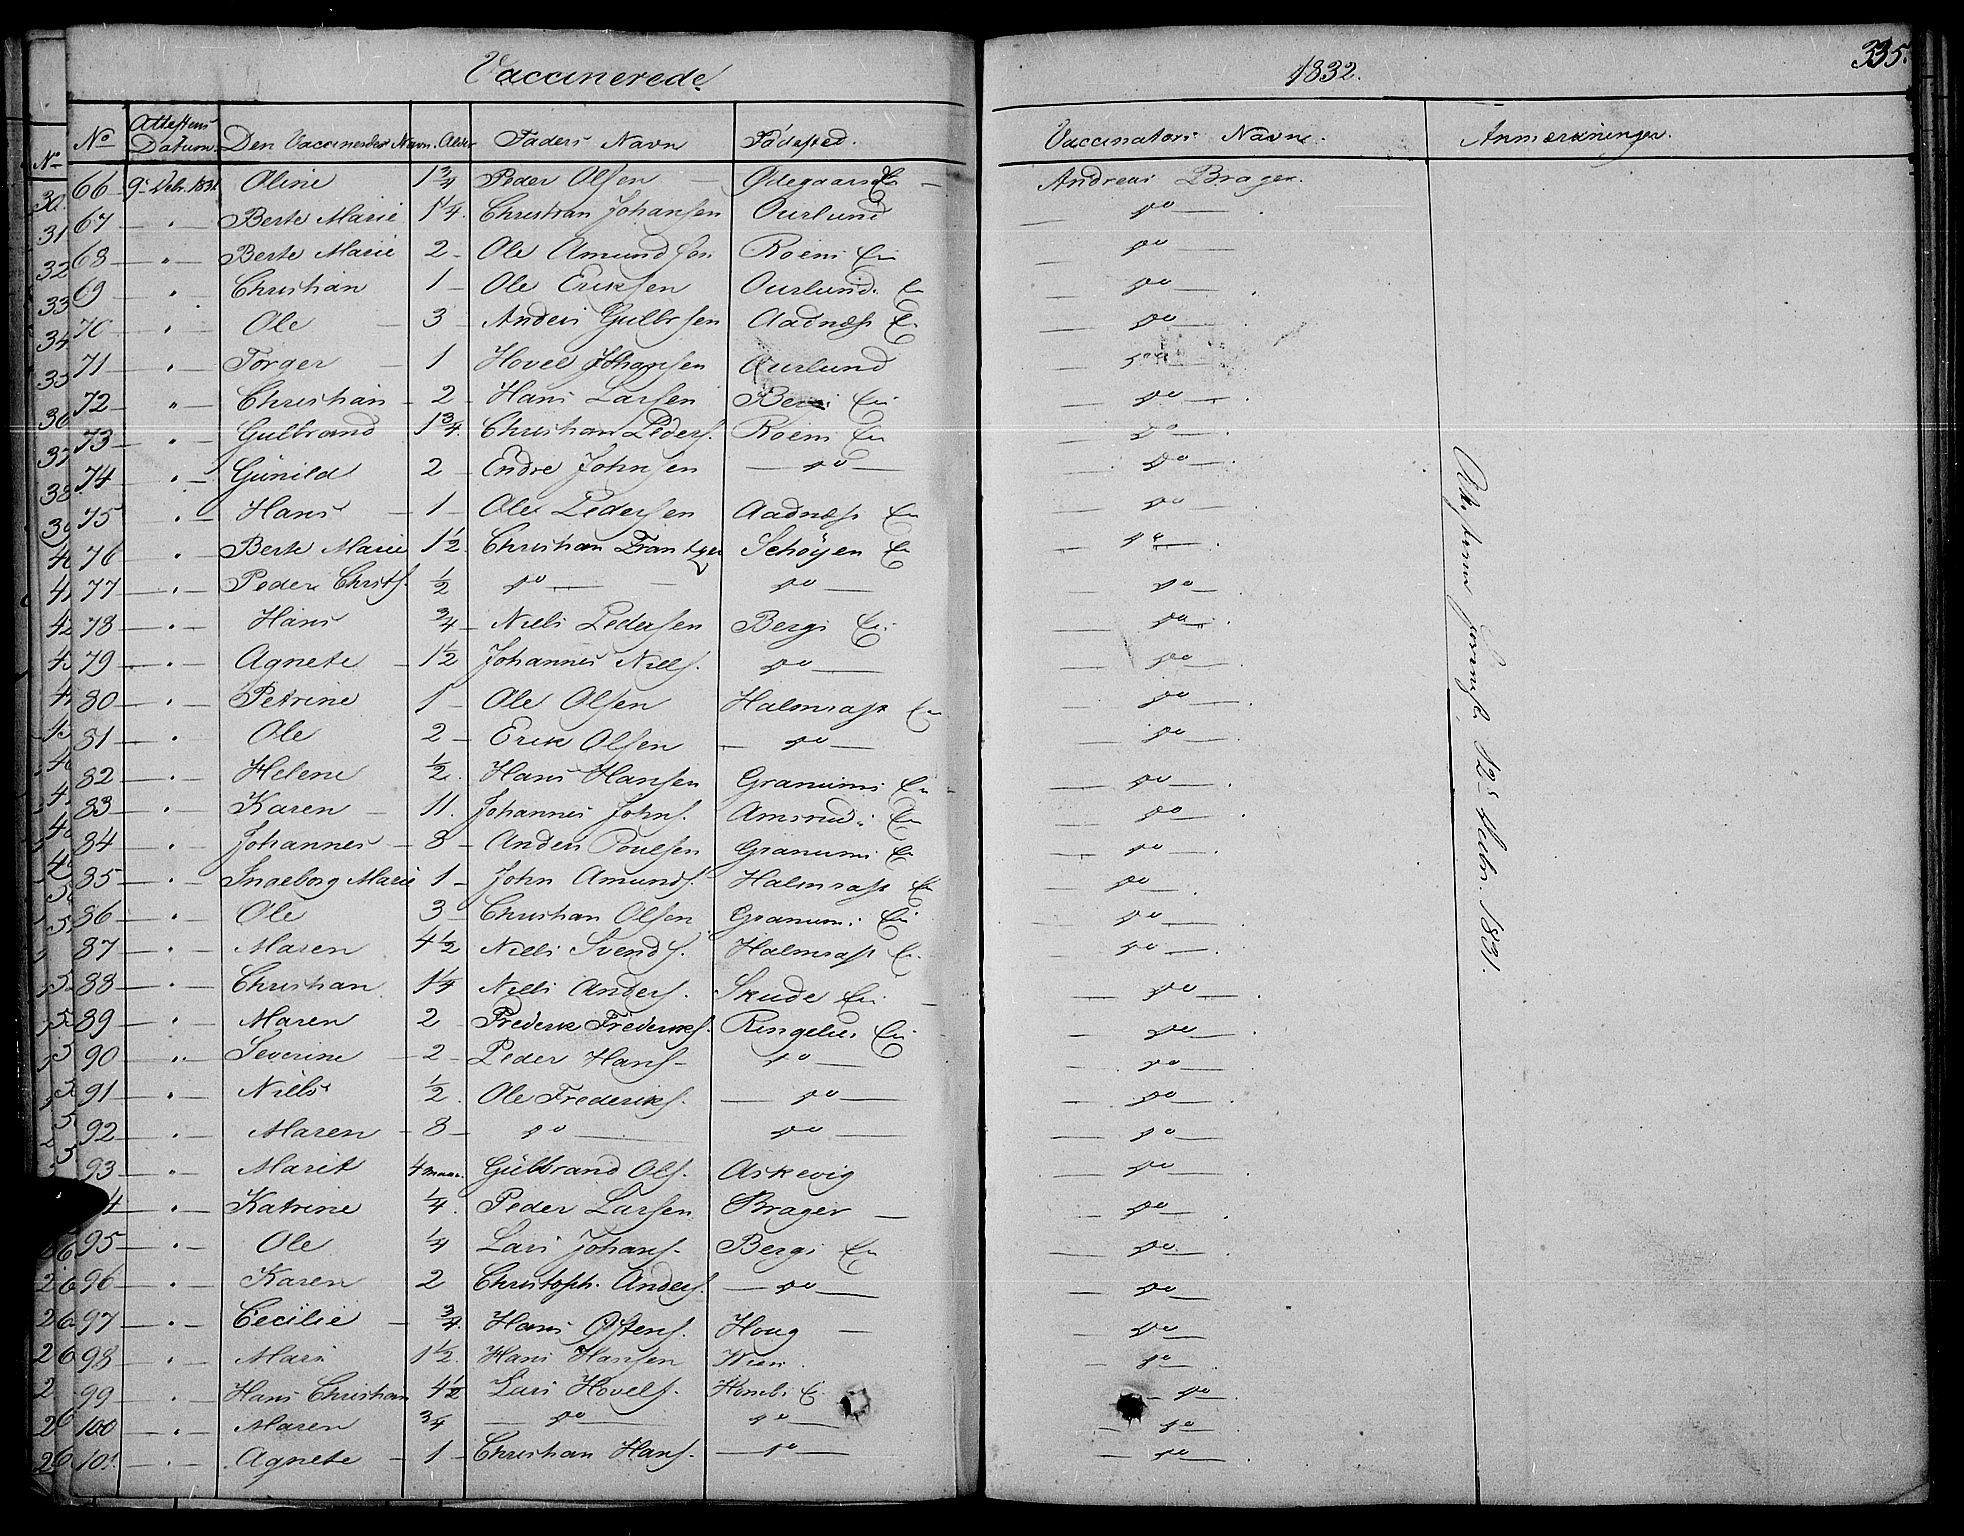 Vaccinerede
1832.
335.
No Attestens Datum. Den Vaccineredes Navn. Alder Faders Navn Fødested. Vaccinators Navn. Anmærkninger.
66 9. 1831 Oline 1 3/4 Peder Olsen Ødegaards Andreas Brager.
67 Berte Marie 1 1/4 Christian Johansen Ourlund Do
68 Berte Marie 2 Ole Amundsen Roens Ei Do
69 Christian 1 Ole Eriksen Ourlund Ei Do
70 Ole 3 Anders Gulbrsen Aadnæss Ei Do
71 Torger 1 Hovel Johansen Ourlund Do
72 Christian 2 Hans Larsen Bergs Ei Do
73 Gulbrand 1 3/4 Christian Peders. Roens Ei Do
74 Gunild 2 Endre Johnsen Do Do
75 Hans 1 Ole Pedersen Aadnæss Ei Do
76 Berte Marie 1 1/2 Christian Frantzen Schøyen Ei Do
77 Peder Christ. 1/2 Do Do Do
78 Hans 3/4 Niels Pedersen Bergs Ei Do
79 Agnete 1 1/2 Johannes Niels. Do Do
80 Petrine 1 Ole Olsen Halmrast Ei Do
81 Ole 2 Erik Olsen Do Do
82 Helene 1/2 Hans Hansen Granums Ei Do
83 Karen 11. Johannes Johns. Amsrud. Ei Do
84 Johannes 8 Anders Poulsen Granums Ei Do
85 Ingeborg Marie 1 John Amunds. Halmrast Ei Do
86 Ole 3 Christian Olsen Granums Ei Do
87 Maren 4 1/2 Niels Svends. Halmrast Ei Do
88 Christian 1 1/4 Niels Anders. Skude Ei Do
89 Maren 2 Frederik Frederiks. Ringelies Ei Do
90 Severine 2 Peder Hans. Do Do
91 Niels 1/2 Ole Frederiks. Do Do
92 Maren 8 Do Do Do
93 Marit 4 Gulbrand Ols. Askevig Do
4 Katrine 1/4. Peder Larsen Brager Do
95 Ole 1/4 Lars Johans. Bergs Ei Do
96 Karen 2 Christoph. Anders. Do Do
97 Cecilie 3/4. Hans Ostens. Houg Do
98 Mari 1 1/2. Hans Hansen Wien Do
99 Hans Christian 4 1/2 Lars Hovels. Ei Do
100 Maren 3/4 Do Do Do
101 Agnete 1 Christian Hans. Do Do
1831.